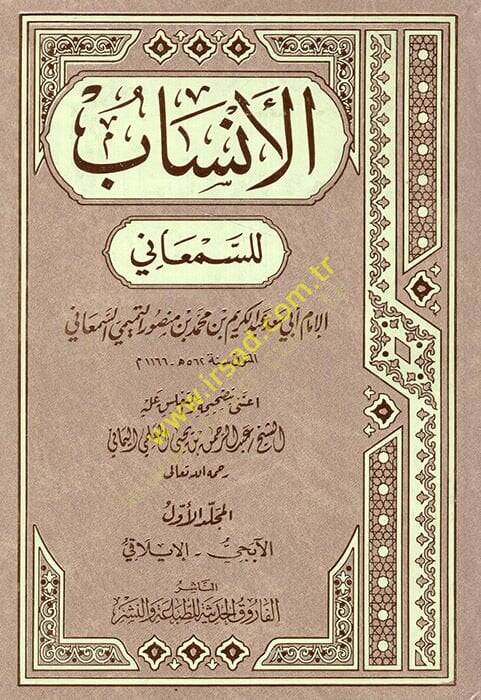 الأنساب
للسمعاني
الإمام أبي سعد عبد الكريم بن محمد بن منصور التميمي السمعاني
المتوفى سنة ٥٦٢ هـ - ١١٦٦ م
اعتنى بتصحيحه والتعليق عليه
الشيخ / عبد الرحمن بن يحيى المعلمي اليماني
رحمه الله تعالى
المجلد الأول
الآبجي - الإيلاقي
الناشر
الفاروق الحديثة للطباعة والنشر
www.irsad.com.tr